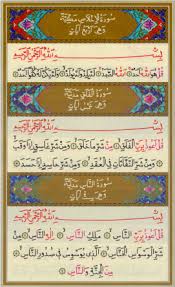 سورة الإخلاص مكية
وهي أربع آيات
بسم الله الرحمن الرحيم
قل هو الله أحد الله الصمد لم يلد ولم يولد ولم يكن له كفوا أحد
سورة الفلق مدنية
وهي خمس آيات
بسم الله الرحمن الرحيم
قل أعوذ برب الفلق من شر ما خلق ومن شر غاسق إذا وقب
ومن شر النفاثات في العقد ومن شر حاسد إذا حسد
سورة الناس مدنية
وهي ست آيات
بسم الله الرحمن الرحيم
قل أعوذ برب الناس ملك الناس إله الناس من شر
الوسواس الخناس الذي يوسوس في صدور الناس
من الجنة والناس